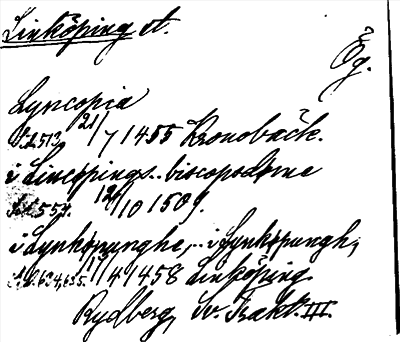 Linköping st.
Ög.
Lyncopia
s. 513, 21/7 1455 Kronobäck.
i Lincöpings biscopsdöme
s. 559. 12/10 1509.
i Lynköpunghe, i Lynköpungh,
s. 634, 635. 17/4 1458 Linköping
Rydberg, Sv. Trakt. III.